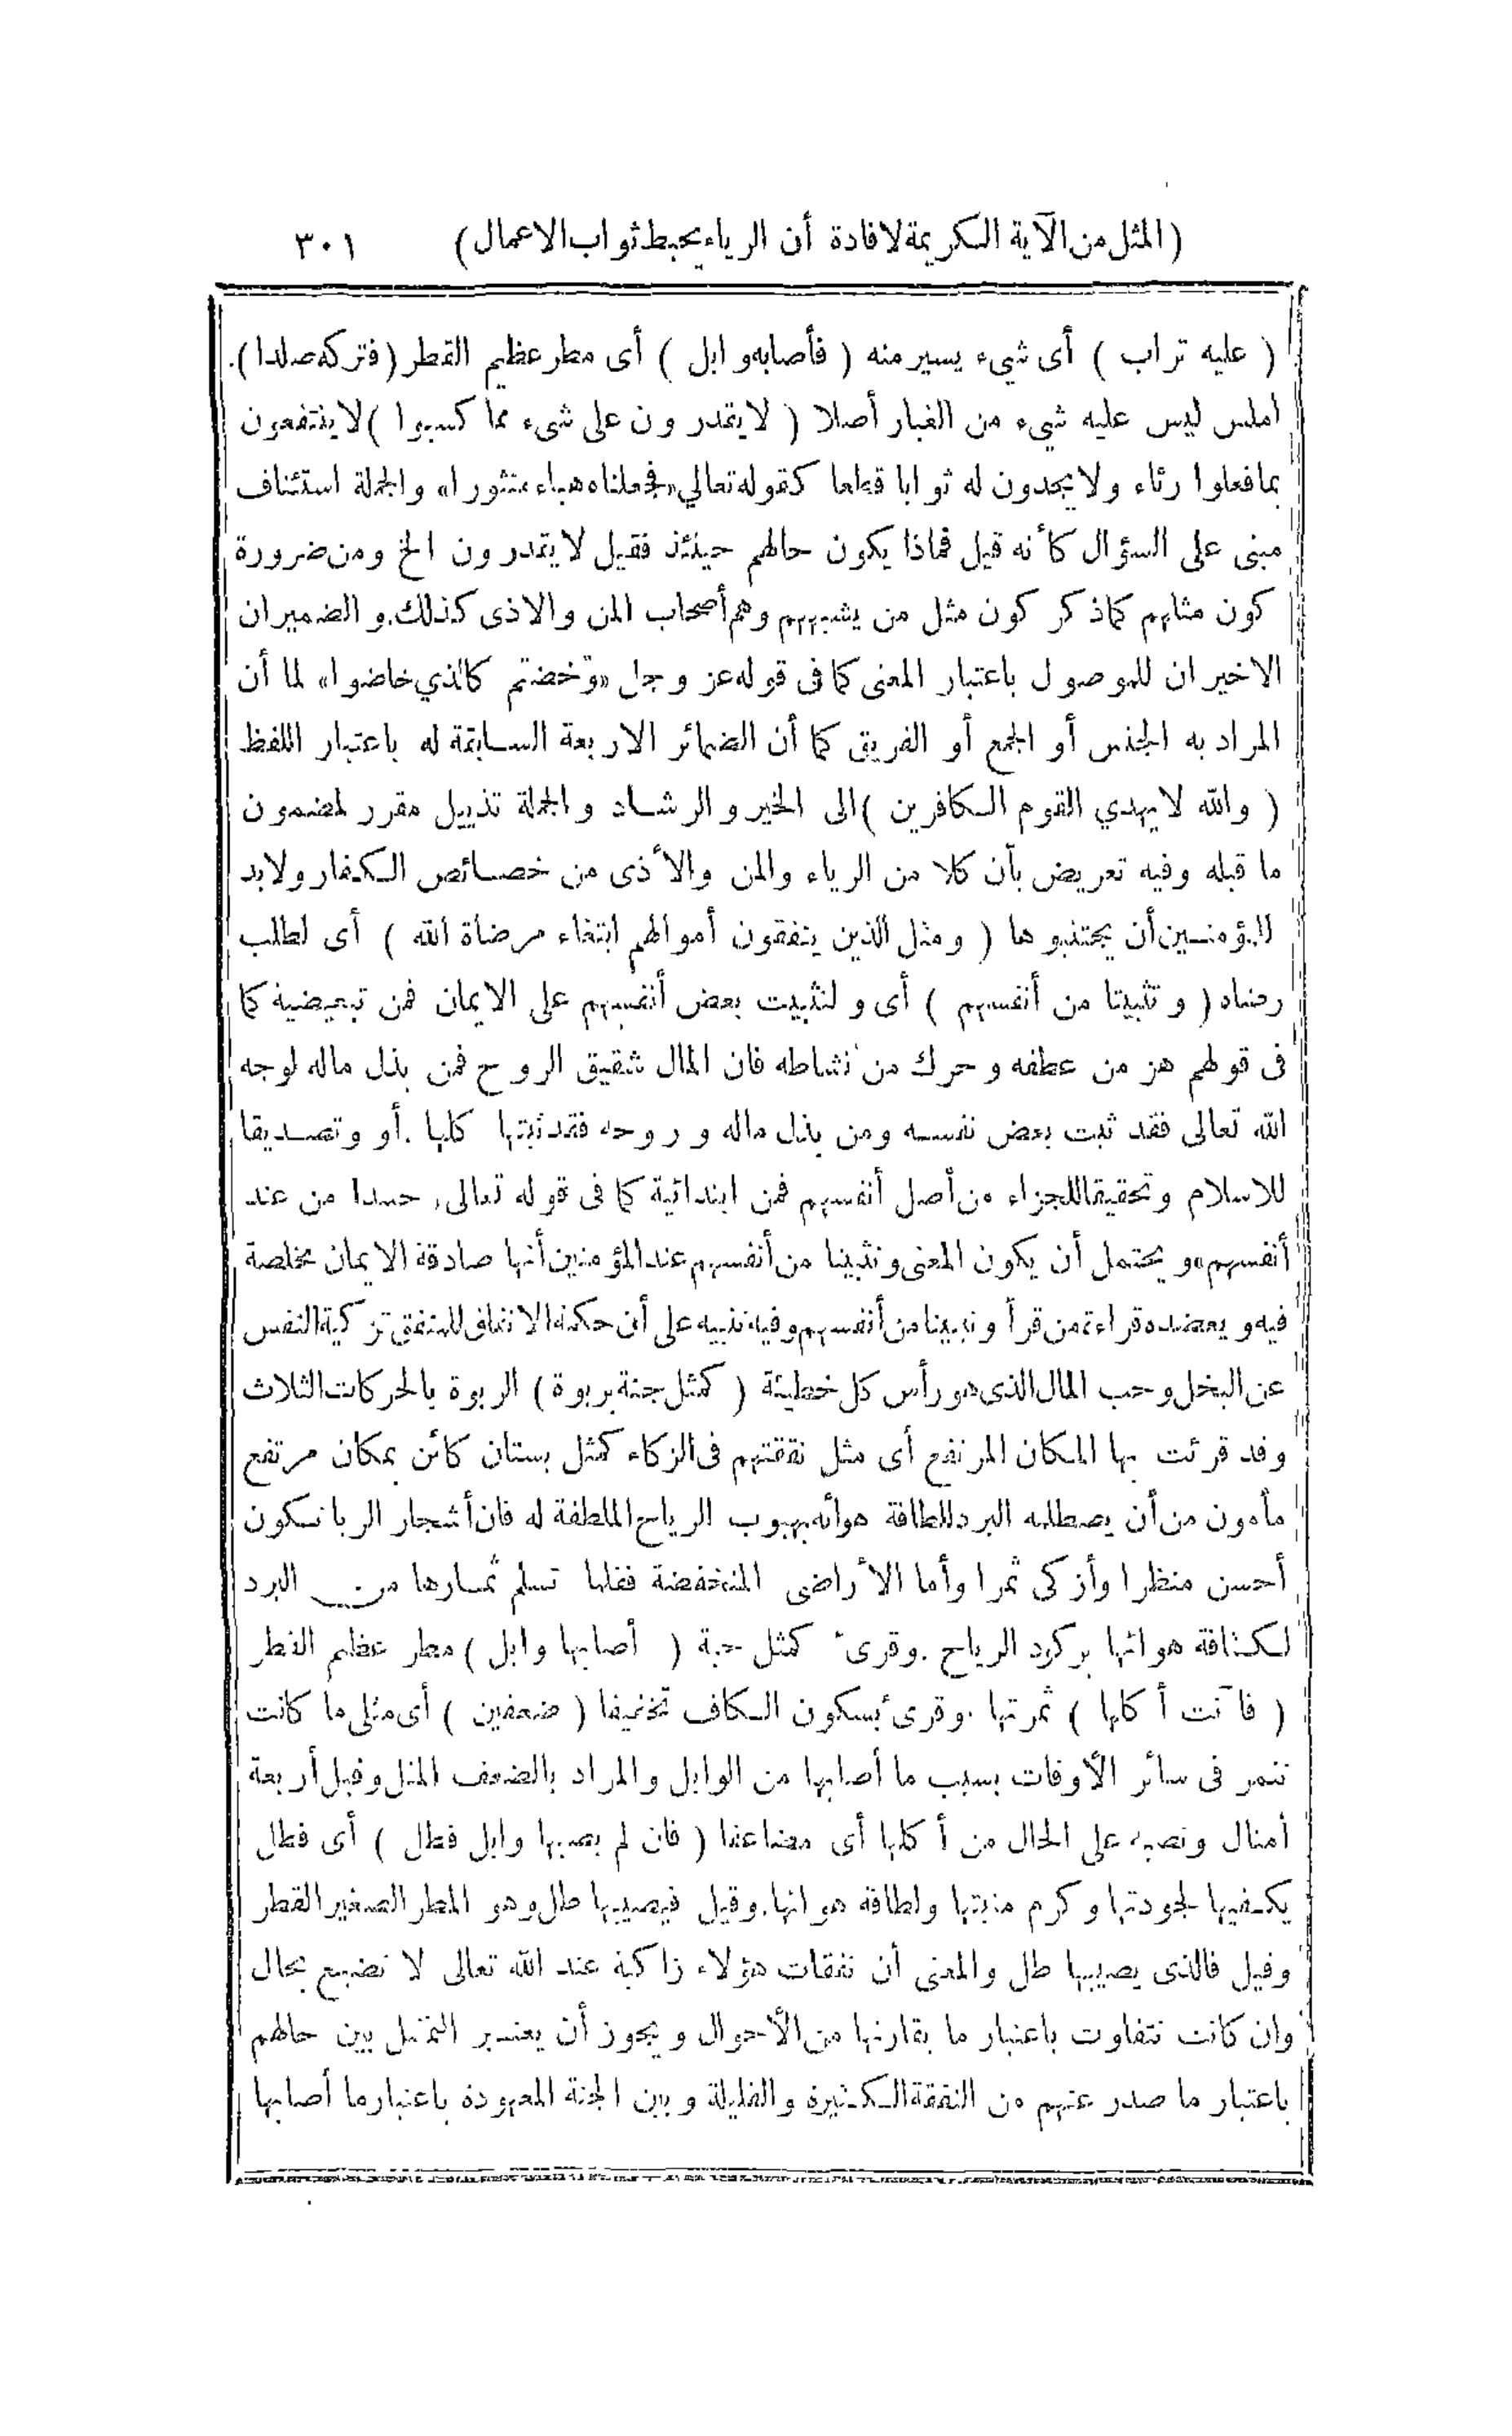 (المثل من الآية الكريمة لافادة أن الرياء يحبط ثواب الاعمال) ٣٠١
( عليه تراب ) أى شيء يسير منه ( فأصابه وابل ) أى مطر عظيم القطر ( فتركه صلدا ).
املس ليس عليه شيء من الغبار أصلا ( لا يقدرون على شىء مما كسبوا ) لا ينتفعون
بما فعلوا رئاء ولا يجدون له ثوابا قطعا كقوله تعالي «فجعلناه هباء منثورا» والجملة استئناف
مبنى على السؤال كأنه قيل فماذا يكون حالهم حينئذ فقيل لا يقدرون الخ ومن ضرورة
كون مثلهم كما ذكر كون مثل من يشبههم وهم أصحاب المن والاذى كذلك. والضميران
الاخيران للموصول باعتبار المعنى كما فى قوله عز وجل «وخضتم كالذي خاضوا» لما أن
المراد به الجنس أو الجمع أو الفريق كما أن الضمائر الاربعة السابقة له باعتبار اللفظ
( والله لا يهدي القوم الكافرين ) الى الخير والرشاد والجملة تذييل مقرر لمضمون
ما قبله وفيه تعريض بأن كلا من الرياء والمن والأذى من خصائص الكفار ولابد
للمؤمنين أن يجتنبوها ( ومثل الذين ينفقون أموالهم ابتغاء مرضاة الله ) أى لطلب
رضاه ( وتثبيتا من أنفسهم ) أى ولتثبيت بعض أنفسهم على الايمان فمن تبعيضية كما
فى قولهم هز من عطفه وحرك من نشاطه فان المال شقيق الروح فمن بذل ماله لوجه
الله تعالى فقد ثبت بعض نفسه ومن بذل ماله وروحه فقد ثبتها كلها . أو وتصديقا
للاسلام وتحقيقا للجزاء من أصل أنفسهم فمن ابتدائية كما فى قوله تعالى، حسدا من عند
أنفسهم» ويحتمل أن يكون المعنى وتثبيتا من أنفسهم عند المؤمنين أنها صادقة الايمان مخلصة
فيه ويعضده قراءة من قرأ وتبيينا من أنفسهم وفيه تنبيه على أن حكمة الانفاق للمنفق تزكية النفس
عن البخل وحب المال الذى هو رأس كل خطيئة ( كمثل جنة بربوة ) الربوة بالحركات الثلاث
وقد قرئت بها المكان المرتفع أى مثل نفقتهم فى الزكاء كمثل بستان كائن بمكان مرتفع
مأمون من أن يصطلمه البرد للطافة هوائه بهبوب الرياح الملطفة له فان أشجار الربا تكون
أحسن منظرا وأزكى ثمرا وأما الأراضى المنخفضة فقلما تسلم ثمارها من البرد
لكثافة هوائها بركود الرياح . وقرىء كمثل حبة ( أصابها وابل ) مطر عظيم القطر
( فآتت أكلها ) ثمرتها . وقرىء بسكون الكاف تخفيفا ( ضعفين ) أى مثلى ما كانت
تثمر فى سائر الأوقات بسبب ما أصابها من الوابل والمراد بالضعف المثل وقيل أربعة
أمثال ونصبه على الحال من أكلها أى مضاعفا ( فان لم يصبها وابل فطل ) أى فطل
يكفيها لجودتها وكرم منبتها ولطافة هوائها. وقيل فيصيبها طل وهو المطر الصغير القطر
وقيل فالذى يصيبها طل والمعنى أن نفقات هؤلاء زاكية عند الله تعالى لا تضيع بحال
وان كانت تتفاوت باعتبار ما يقارنها من الأحوال ويجوز أن يعتبر التمثيل بين حالهم
باعتبار ما صدر عنهم من النفقة الكثيرة والقليلة وبين الجنة المعهودة باعتبار ما أصابها